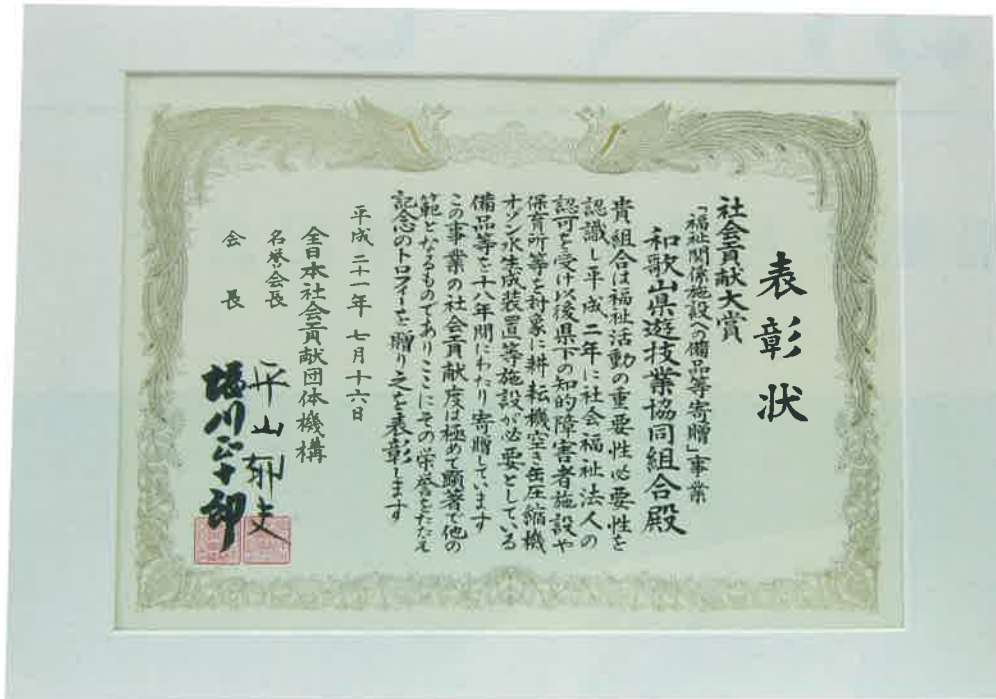 表彰状
社会貢献大賞
「福祉関係施設への備品等寄贈」事業
和歌山県遊技業協同組合殿
貴組合は福祉活動の重要性必要性を
認識し平成二年に社会福祉法人の
認可を受け以後県下の知的障害者施設や
保育所等を対象に耕転機空き缶圧縮機
オゾン水生成装置等施設が必要としている
備品等を十八年間にわたり寄贈しています
この事業の社会貢献度は極めて顕著で他の
範となるものでありここにその栄誉をたたえ
記念のトロフィーを贈り之を表彰します
平成二十一年七月十六日
全日本社会貢献団体機構
名誉会長 平山郁夫
会長